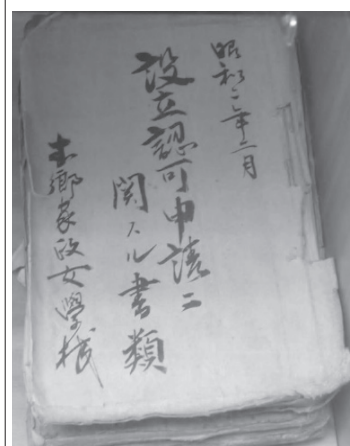 昭和二年二月
設立認可申請ニ
関スル書類
本郷家政女學校